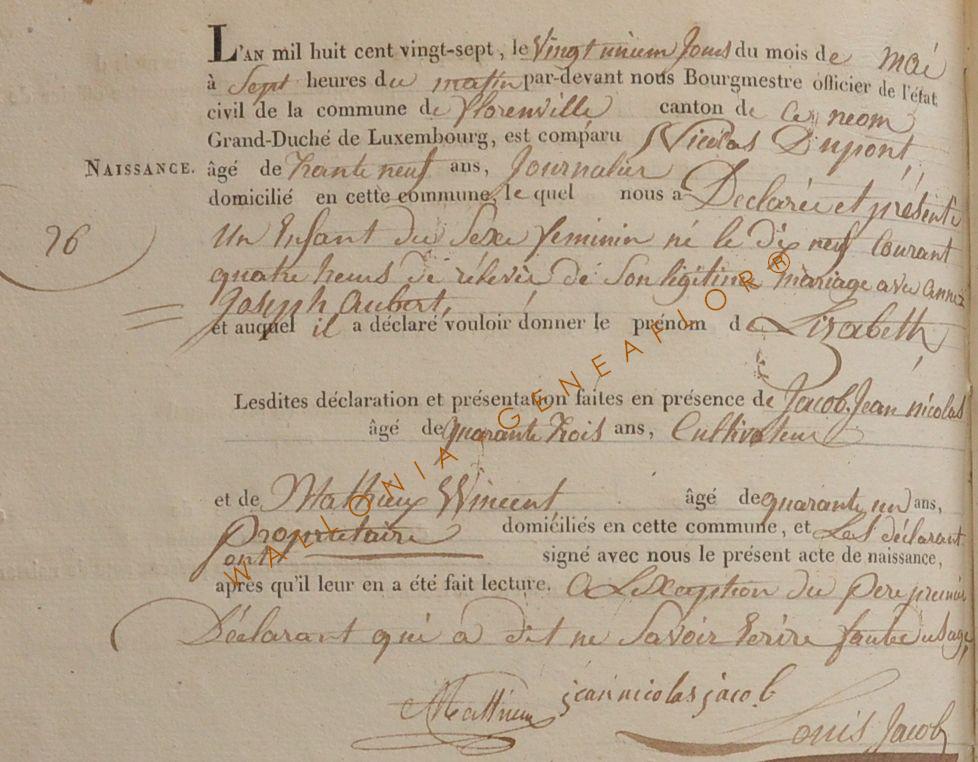 L'AN mil huit cent vingt-sept, le Vingt unieme Jour du mois de mai
à Sept heures du matin par-devant nous Bourgmestre officier de l'état
civil de la commune de florenville canton de ce nom
Grand-Duché de Luxembourg, est comparu Nicolas Dupont,
NAISSANCE. âgé de trante neuf ans, Journalier
domicilié en cette commune, le quel nous a Déclaréé et présenté
26 Un Enfant du Sexe feminin né le dix neuf Courant
quatre heurs de relevée de Son légitime mariage avec anne
Joseph aubert,
et auquel il a déclaré vouloir donner le prénom de Lizabeth
Lesdites déclaration et présentation faites en présence de Jacob Jean nicolas
âgé de quarante trois ans, Cultivateur
et de Mathieux Vincent, âgé de quarante un ans,
propriétaire domiciliés en cette commune, et Les déclarant
ont signé avec nous le présent acte de naissance,
après qu'il leur en a été fait lecture. a Lexception du pere premier
Déclarant qui a dit ne Savoir Ecrire faute usage,
Mathieux jean nicolas jacob
Louis Jacob
WALLONIA-GENEAFLOR®